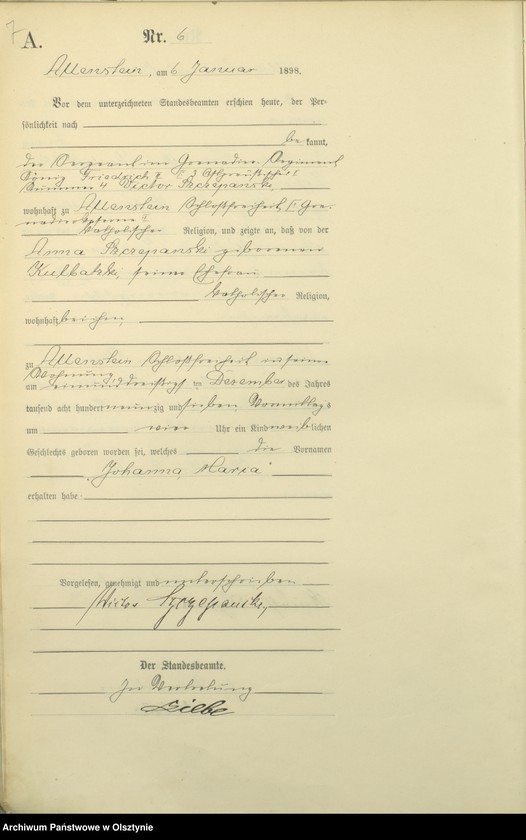 7
A.
Nr. 6
Allenstein, am 6 Januar 1898.
Vor dem unterzeichneten Standesbeamten erschien heute, der Per-
sönlichkeit nach
be kannt,
der Sergeant im Grenadier-Regiment
König Friedrich II 3 Ostpreußisches
Nummer 4 Victor Szczepanski,
wohnhaft zu Allenstein Schloßfreiheit Gre-
nadierkaserne
katholischer Religion, und zeigte an, daß von der
Anna Szczepanski geborenen
Kulbatzki, seine Ehefrau
katholischer Religion,
wohnhaft bei ihm,
zu Allenstein Schloßfreiheit in seiner
Wohnung
am einunddreißigst en Dezember des Jahres
tausend acht hundert neunzig und sieben Vormittags
um vier Uhr ein Kind weiblichen
Geschlechts geboren worden sei, welches die Vornamen
„Johanna Maria“
erhalten habe
Vorgelesen, genehmigt und unterschrieben
Victor Szczepanski,
Der Standesbeamte.
In Vertretung
Archiwum Państwowe w Olsztynie